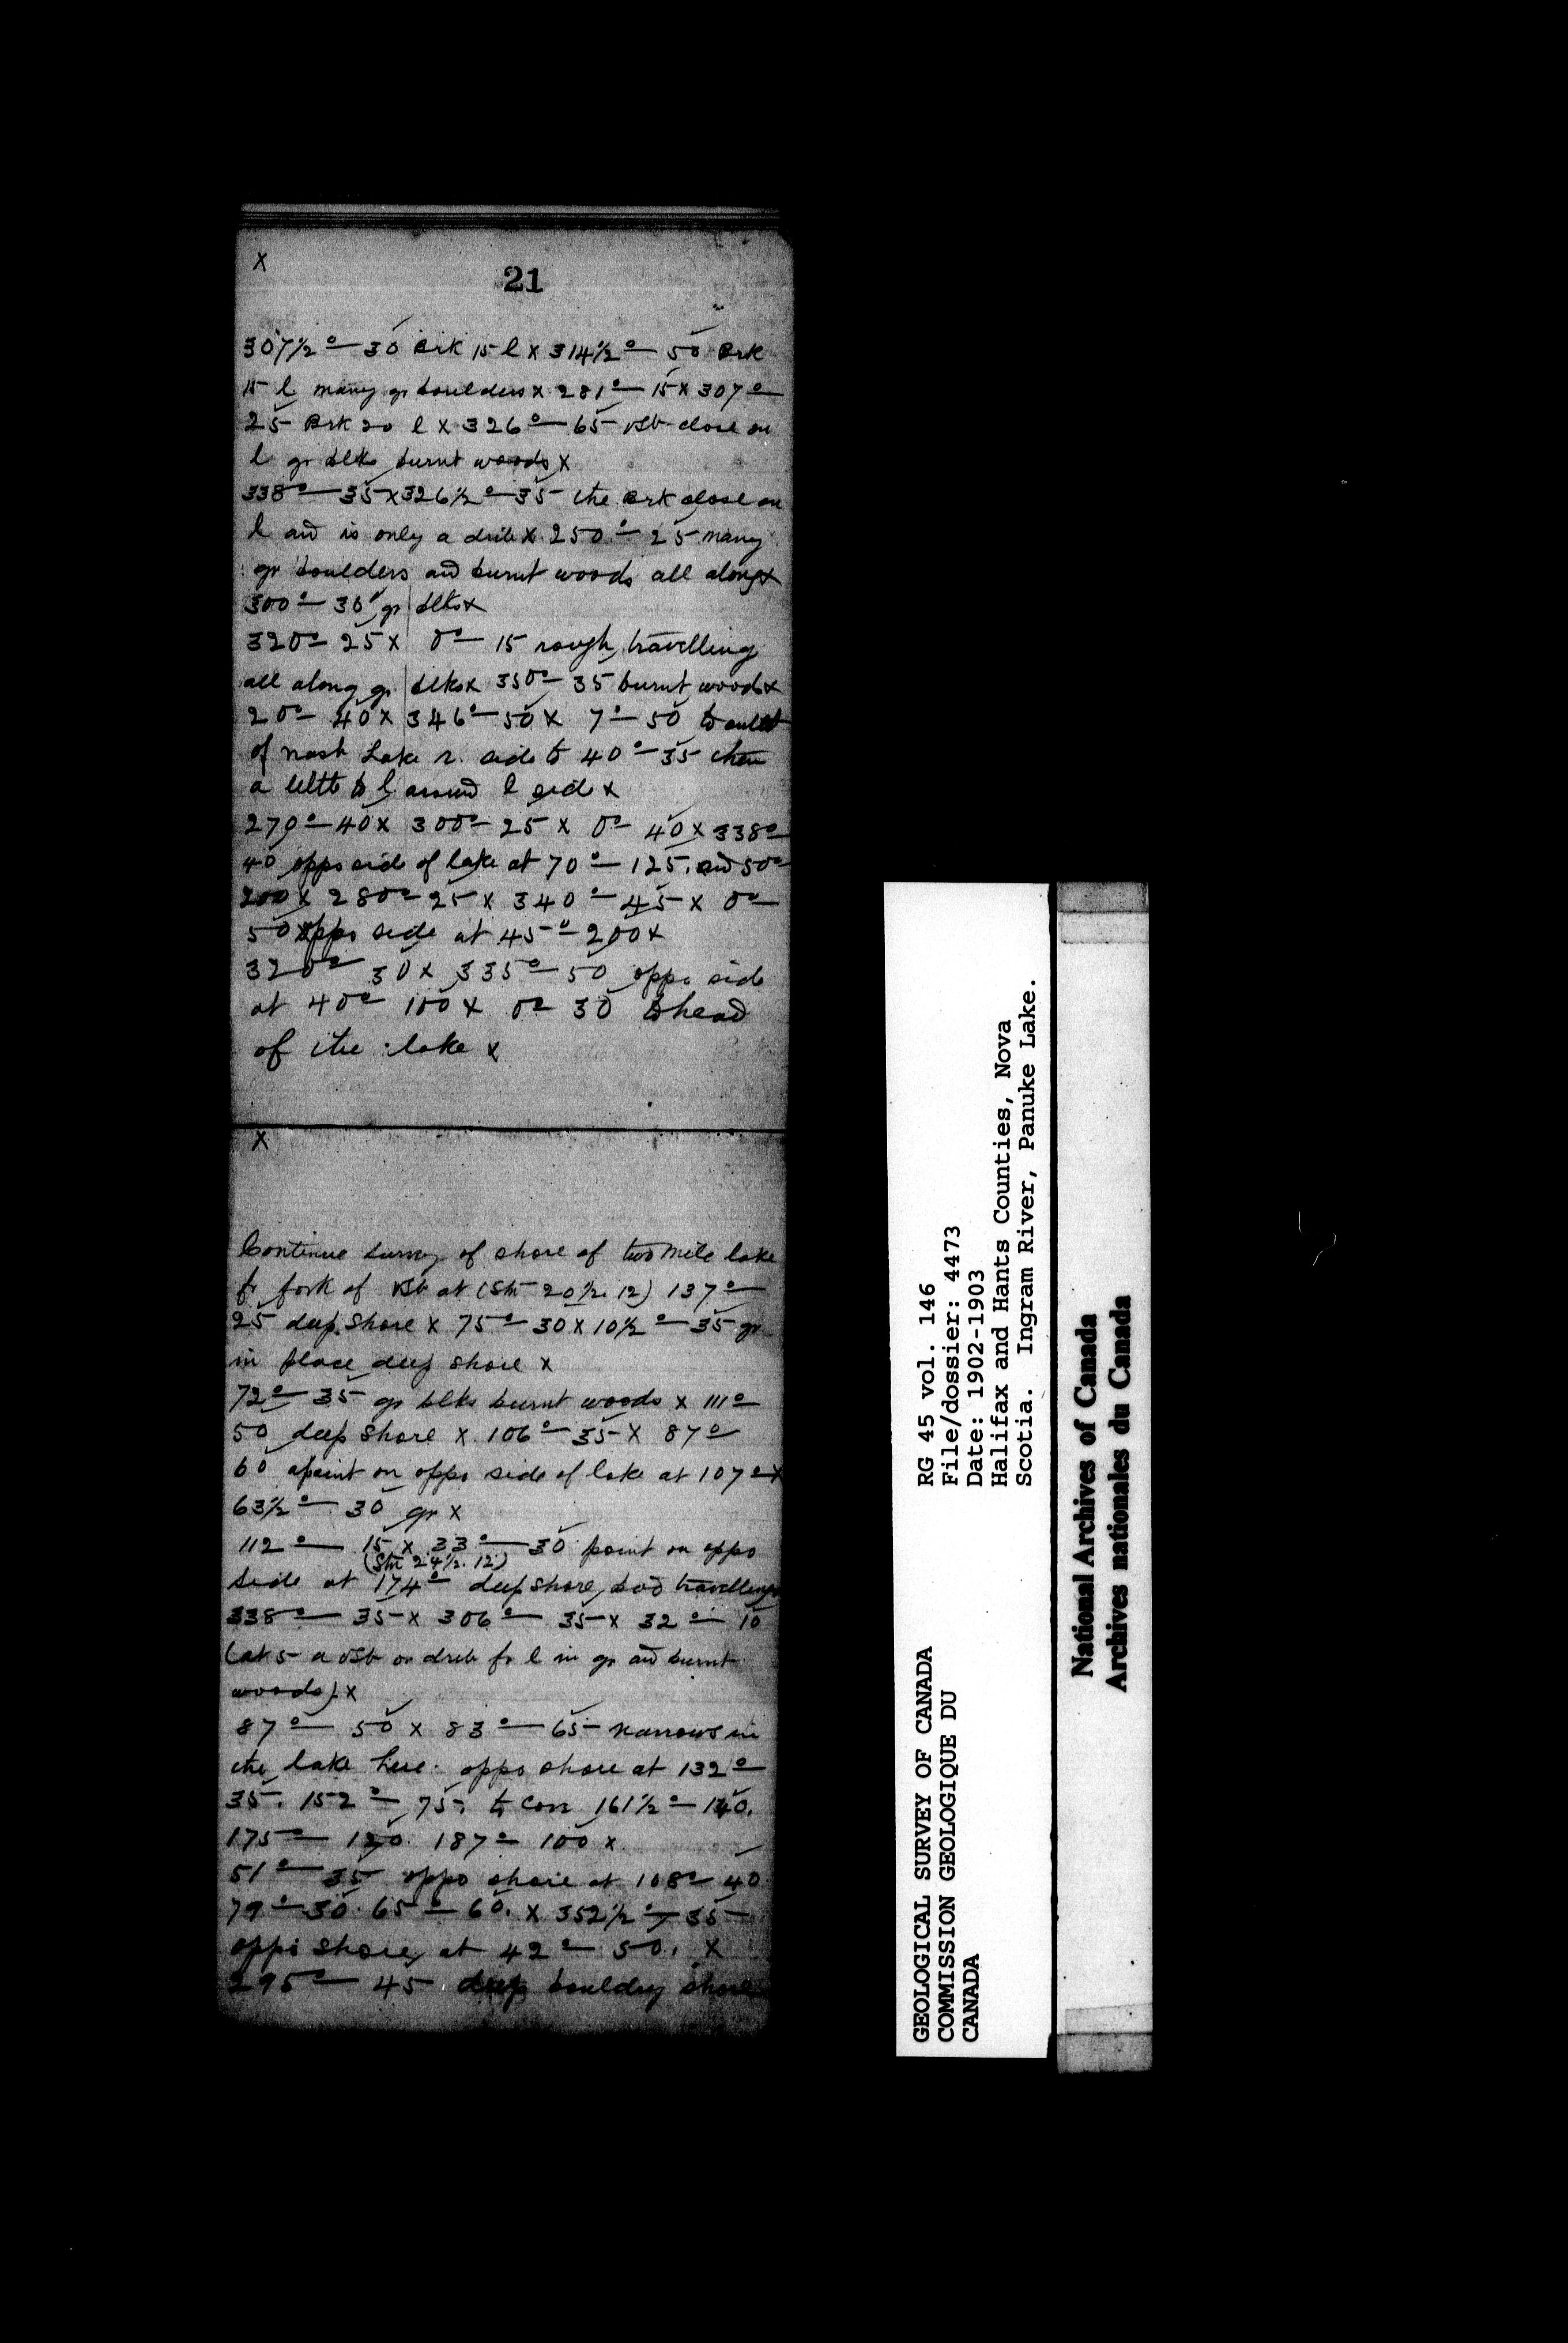 x
21
307½° — 30 Brk 15 l x 314½° — 50 Brk
15 l many gr boulders x 281° — 15 x 307° —
25 Brk 20 l x 326° — 65 close on
l gr blks burnt woods x
338° — 35 x 326½° — 35 the Brk close on
l and is only a x 250° — 25 many
gr boulders and burnt woods all along x
300° — 30 gr blks x
320° — 25 x 0° — 15 rough travelling
all along gr blks x 350° — 35 burnt woods x
20° — 40 x 346° — 50 x 7° — 50 to outlet
of Lake r. side to 40° — 35 then
a little to l around l side x
270° — 40 x 300° — 25 x 0° — 40 x 338° —
40 oppo side of lake at 70° — 125. and 50° —
200 x 280° — 25 x 340° — 45 x 0° —
50 x oppo side at 45° — 200 x
320° — 30 x 335° — 50 oppo side
at 40° — 100 x 0° — 30 to head
of the lake x
x
Continue survey of shore of two mile lake
fr fork of at (Stn 20½. 12) 137° —
25 deep shore x 75° — 30 x 10½° — 35 gr
in place deep shore x
72° — 35 gr blks burnt woods x 111° —
50 deep shore x 106° — 35 x 87° —
60 a point on oppo side of lake at 107° — x
63½° — 30 gr x
112° — 15 x 33° — 30 point on oppo
(Stn 24½. 12)
side at 174° — deep shore, bad travelling
338° — 35 x 306° — 35 x 32° — 10
(at 5 a or fr l in gr and burnt
woods). x
87° — 50 x 83° — 65 narrows in
the lake here. oppo shore at 132° —
35. 152° — 75. to corr 161½° — 140.
175° — 120. 187° — 100 x
51° — 35 oppo shore at 108° — 40
79° — 30. 65° — 60. x 352½° — 35
oppo shore at 42° — 50. x
295° — 45 deep bouldry shore
GEOLOGICAL SURVEY OF CANADA
COMMISSION GEOLOGIQUE DU
CANADA
RG 45 vol. 146
File/dossier: 4473
Date: 1902-1903
Halifax and Hants Counties, Nova
Scotia. Ingram River, Panuke Lake.
National Archives of Canada
Archives nationales du Canada